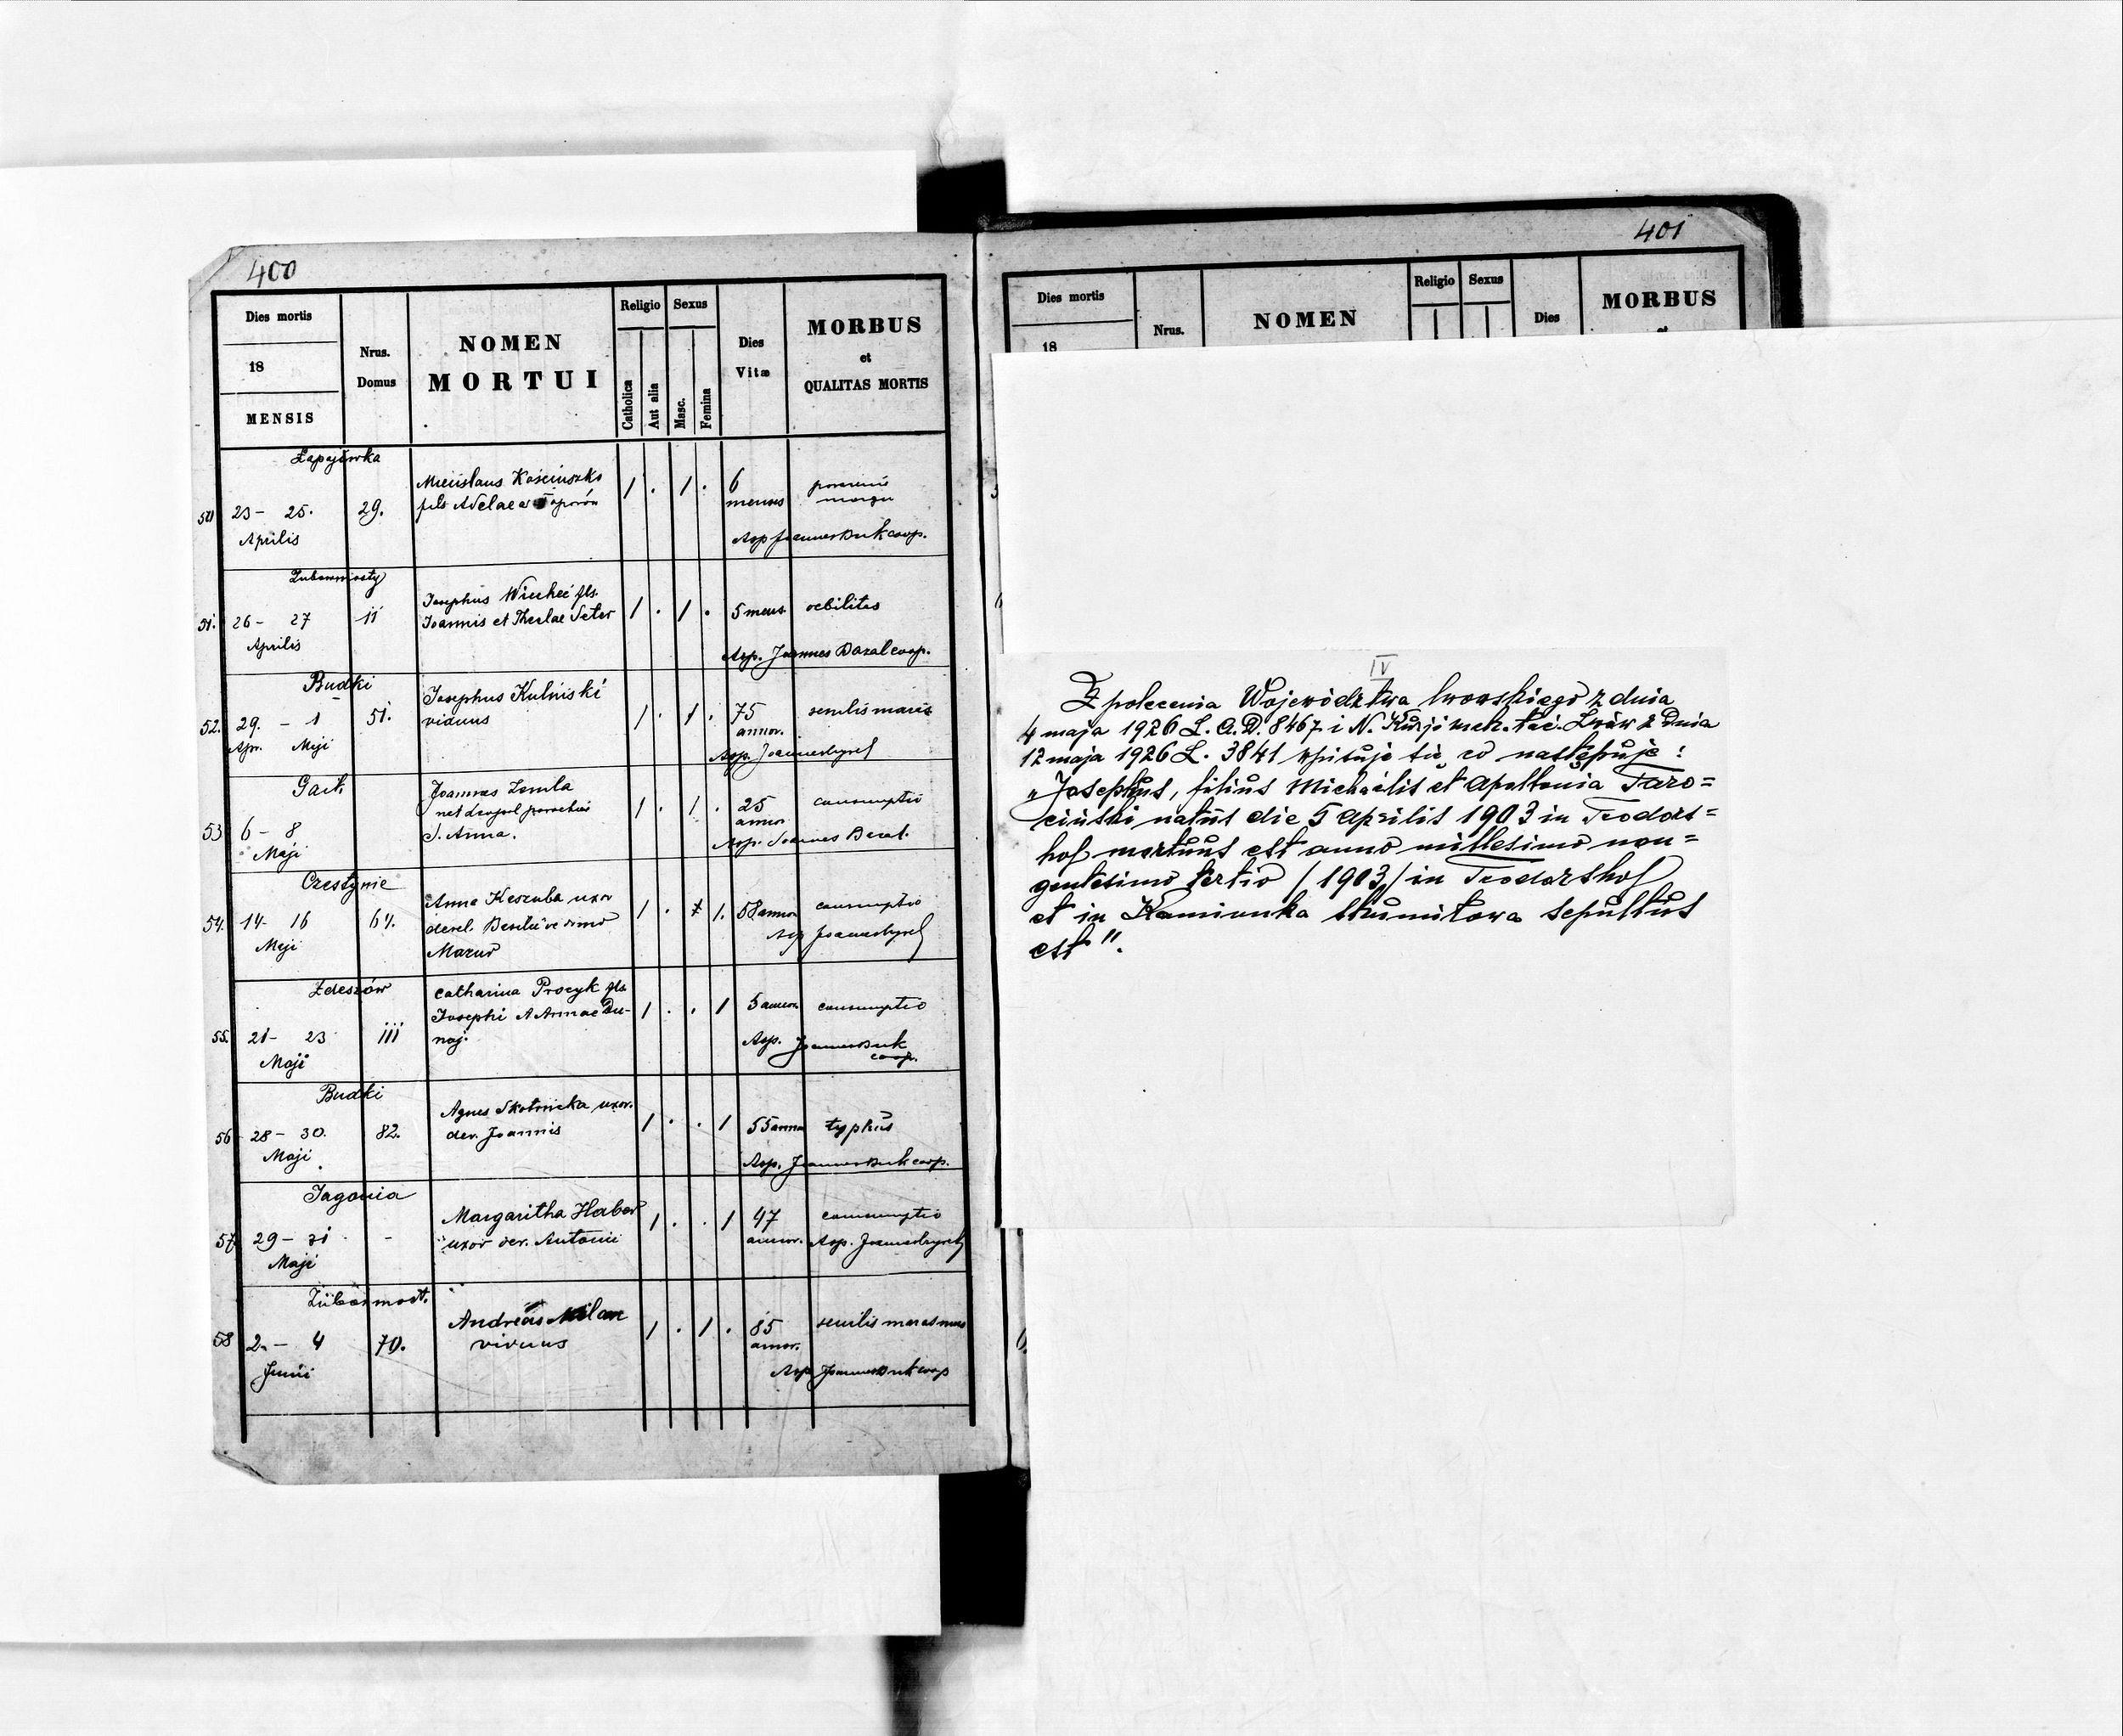 400
Dies mortis
18
MENSIS
Nrus.
Domus
NOMEN
MORTUI
Religio
Catholica
Aut alia
Sexus
Masc.
Femina
Dies
Vitæ
MORBUS
et
QUALITAS MORTIS
Łapajówka
50
23 - 25.
Aprilis
29.
Mieczislaus Kościuszko
fils Adelae
1 . 1 .
6
menses
Asp Joannes Buk coop.
51.
26 - 27
Aprilis
11
Josephus
Joannis et Theclae Seter
1 . 1 .
5 mens
debilitas
Asp. Joannes Bazal coop.
Budki
52.
29. - 1
Apr. Maji
51.
Josephus Kulniski
viduus
1 . 1 .
75
annor.
senilis
Asp. Joannes
53
6 - 8
Maji
Joannes Zemla
S. Anna.
1 . 1 .
25
annor
consumptio
Asp. Joannes
Czestynie
54.
14 - 16
Maji
64.
Anna Keszuba uxor
Mazur
1 . 1.
58 annor
consumptio
Asp Joannes
Zdeszów
55.
21 - 23
Maji
111
Catharina Procyk fils
Josephi et Annae Du-
naj.
1 . . 1
5 annor.
consumptio
Asp. Joannes Buk
coop.
Budki
56
28 - 30.
Maji
82.
Agnes Skotnicka uxor.
der. Joannis
1 . . 1
55 anno
typhus
Asp. Joannes Buk coop.
Jagonia
57
29 - 31
Maji
-
Margaritha Herber
uxor der. Antonii
1 . . 1
47
annor.
consumptio
Asp. Joannes
58
2. - 4
Junii
70.
Andreas Milan
viduus
1 . 1 .
85
annor.
senilis marasmus
Asp Joannes Buk coop
401
Dies mortis
18
Nrus.
NOMEN
Religio
Sexus
Dies
MORBUS
IV
Z polecenia Województwa lwowskiego z dnia
4 maja 1926 L. A.D. 8467 i N. Kurji metr. łać. Lwów z dnia
12 maja 1926 L. 3841 wpisuje się co następuje:
"Josephus, filius Michaelis et Apollonia Taro=
ciński natus die 5 Aprilis 1903 in Teodors=
hof mortuus est anno millesimo non=
gentesimo tertio /1903/ in Teodorshof
et in Kamionka Strumiłowa sepultus
est".